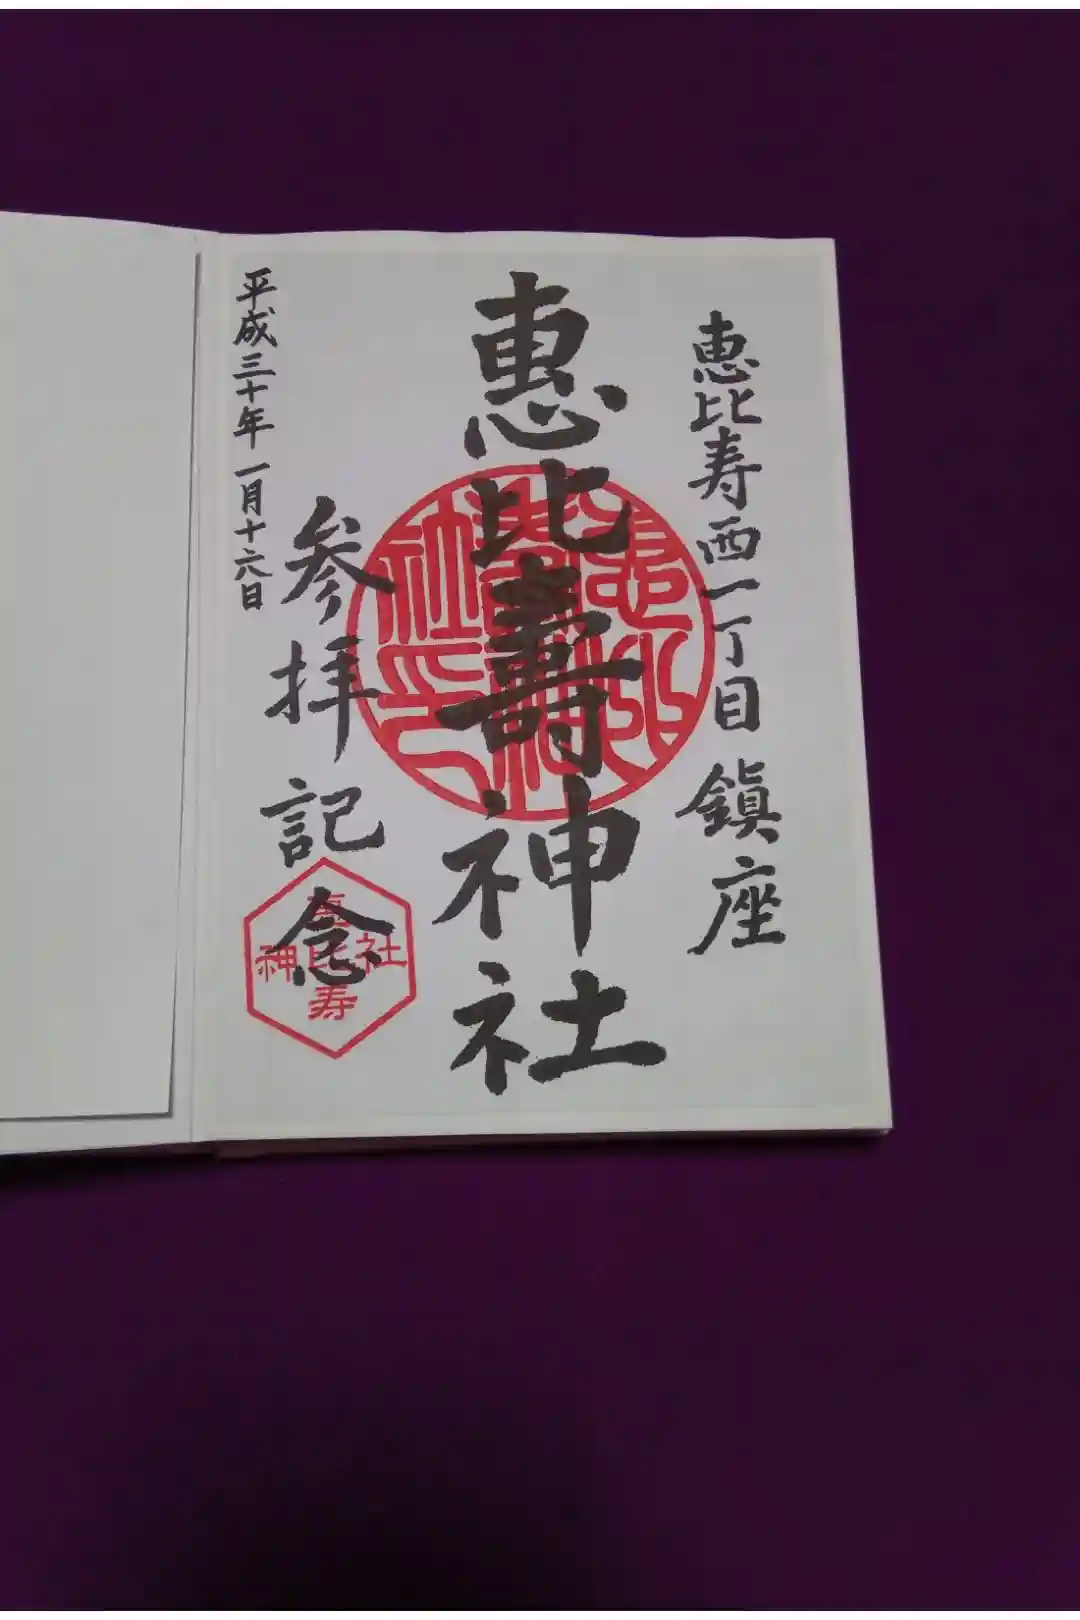 恵比寿西一丁目 鎮座
恵比壽神社
参拝記念
平成三十年 一月十六日
恵比寿
神社